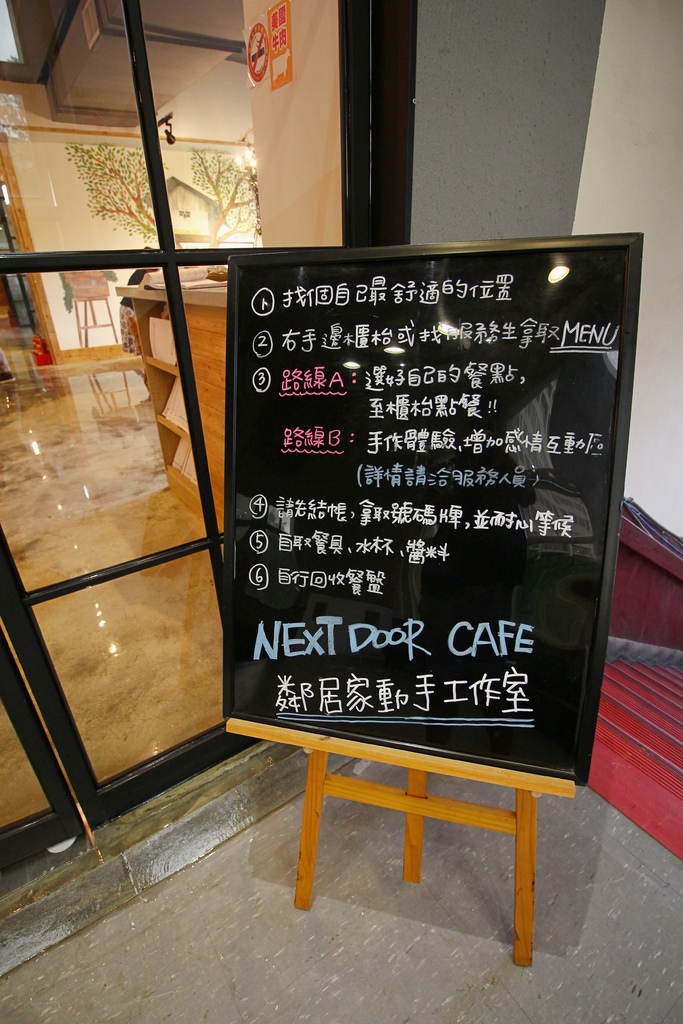 美國
牛肉
① 找個自己最舒適的位置
② 右手邊櫃枱或找服務生拿取MENU
③ 路線A：選好自己的餐點，
至櫃枱點餐!!
路線B：手作體驗、增加感情互動區
(詳情請洽服務人員)
④ 請先結帳，拿取號碼牌，並耐心等候
⑤ 自取餐具、水杯、醬料
⑥ 自行回收餐盤
NEXT DOOR CAFE
鄰居家動手工作室